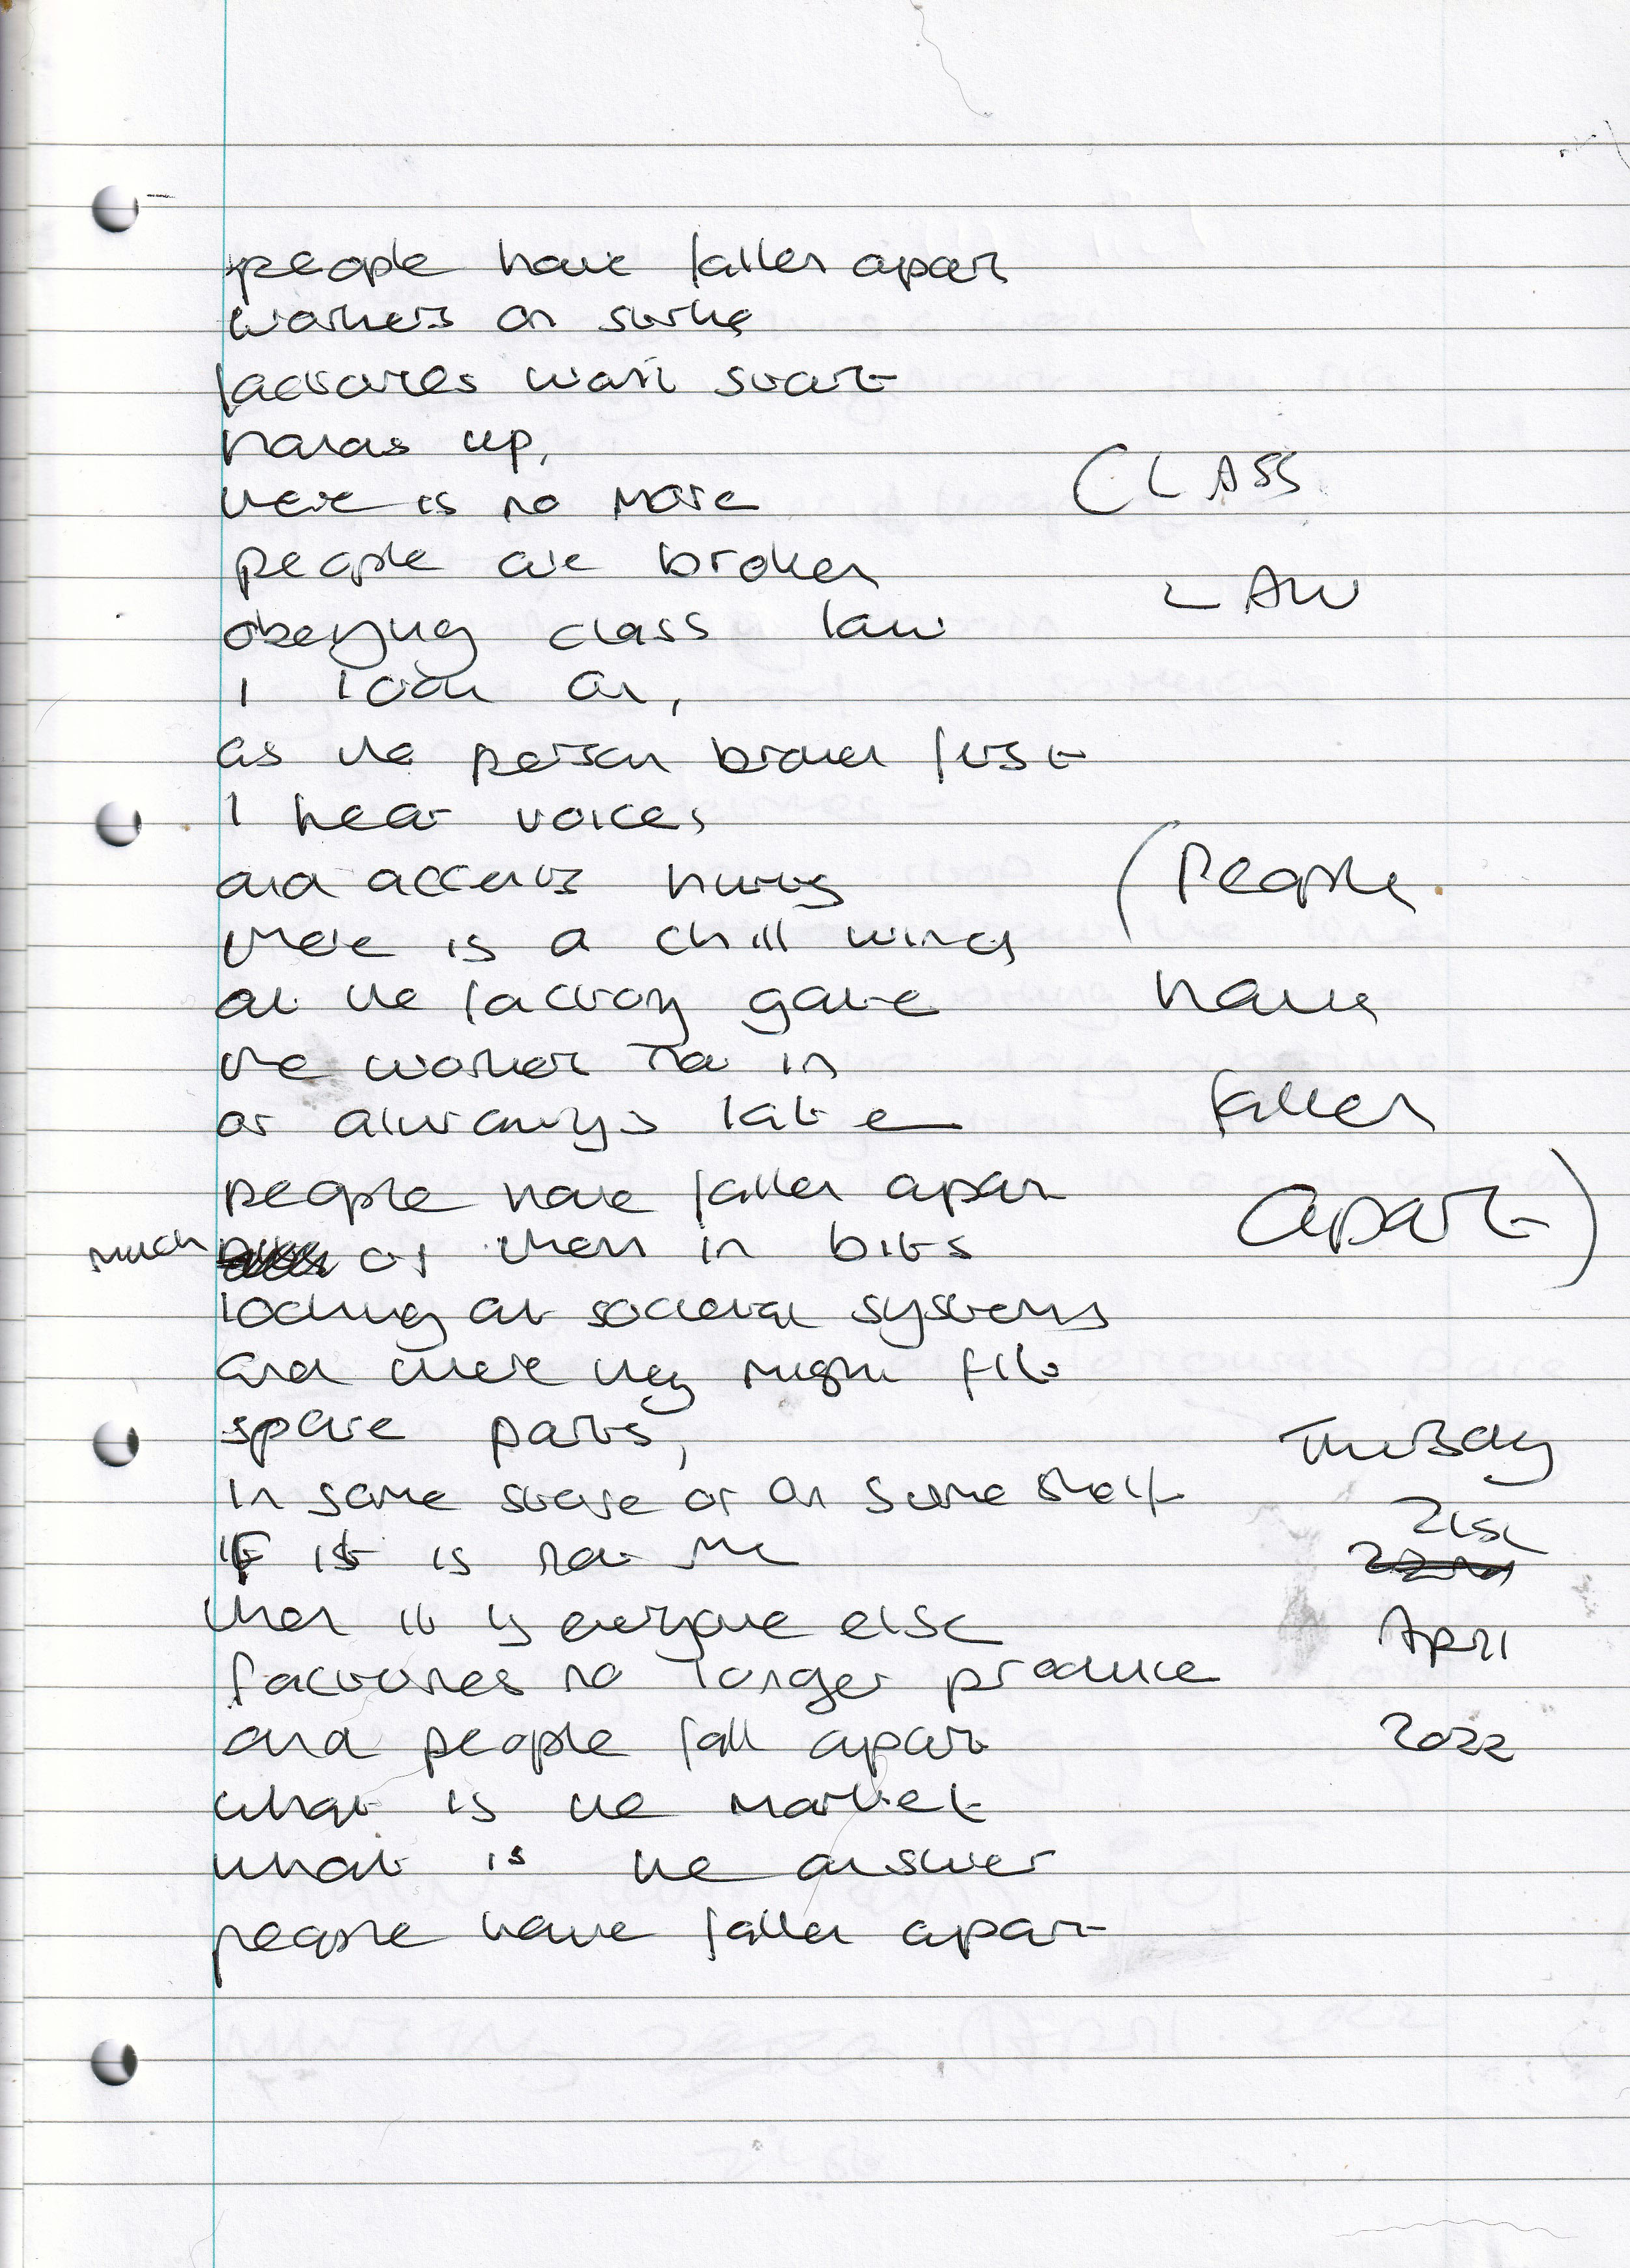 people have fallen apart
workers on strike
factories wait start
hands up,
there is no more
people are broken
obeying class law
I look on,
as the person broken first
I hear voices
and accents
there is a chill wind
at the factory gate
the worker not in
or always late
people have fallen apart
much of them in bits
looking at societal systems
and where they might fit
spare parts,
in some store or on some shelf
if it is not me
then it is everyone else
factories no longer produce
and people fall apart
what is the market
what is the answer
people have fallen apart
(CLASS
LAW
(People
have
fallen
apart)
Thursday
21st
22nd
April
2022